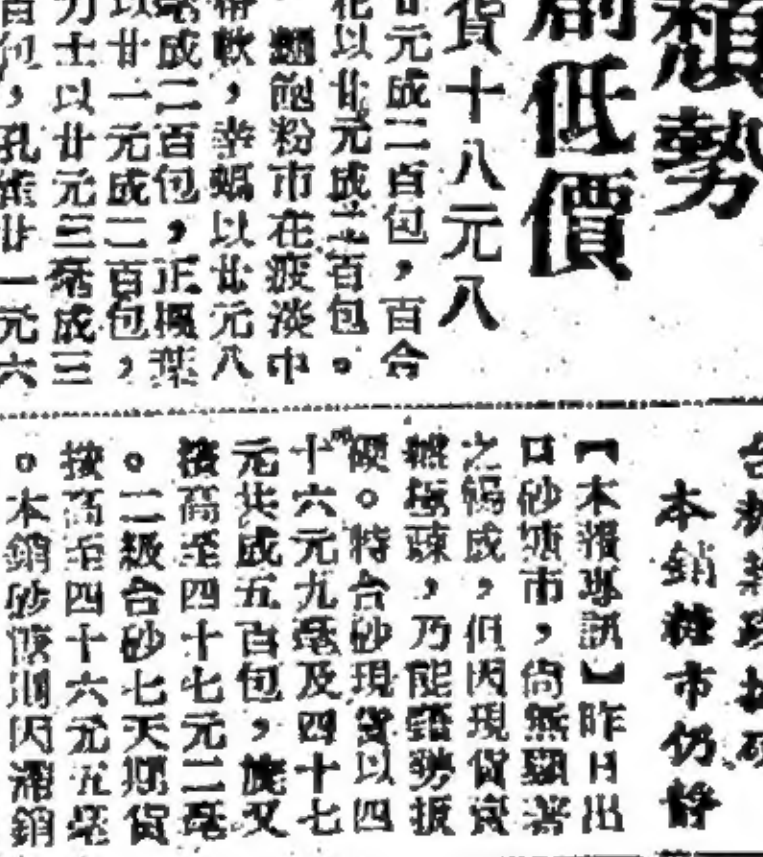 頹勢
創低價
貨十八元八
廿元成二百包，百合
花以廿元成二百包。
麵飽粉市在疲淡中
帶軟，幸蝠以廿元八
毫成二百包，正楓葉
以廿一元成二百包，
力士以廿元三毫成三
百包，孔雀廿一元六
本銷糖市仍靜
【本報專訊】昨日出
口砂糖市，尚無顯著
之暢成，但因現貨貨
緻極疎，乃能錯勢扳
硬。特台砂現貨以四
十六元九毫及四十七
元共成五百包，旋又
按高至四十七元二毫
。二級台砂七天期貨
按高至四十六元五毫
。本銷砂糖則因滯銷